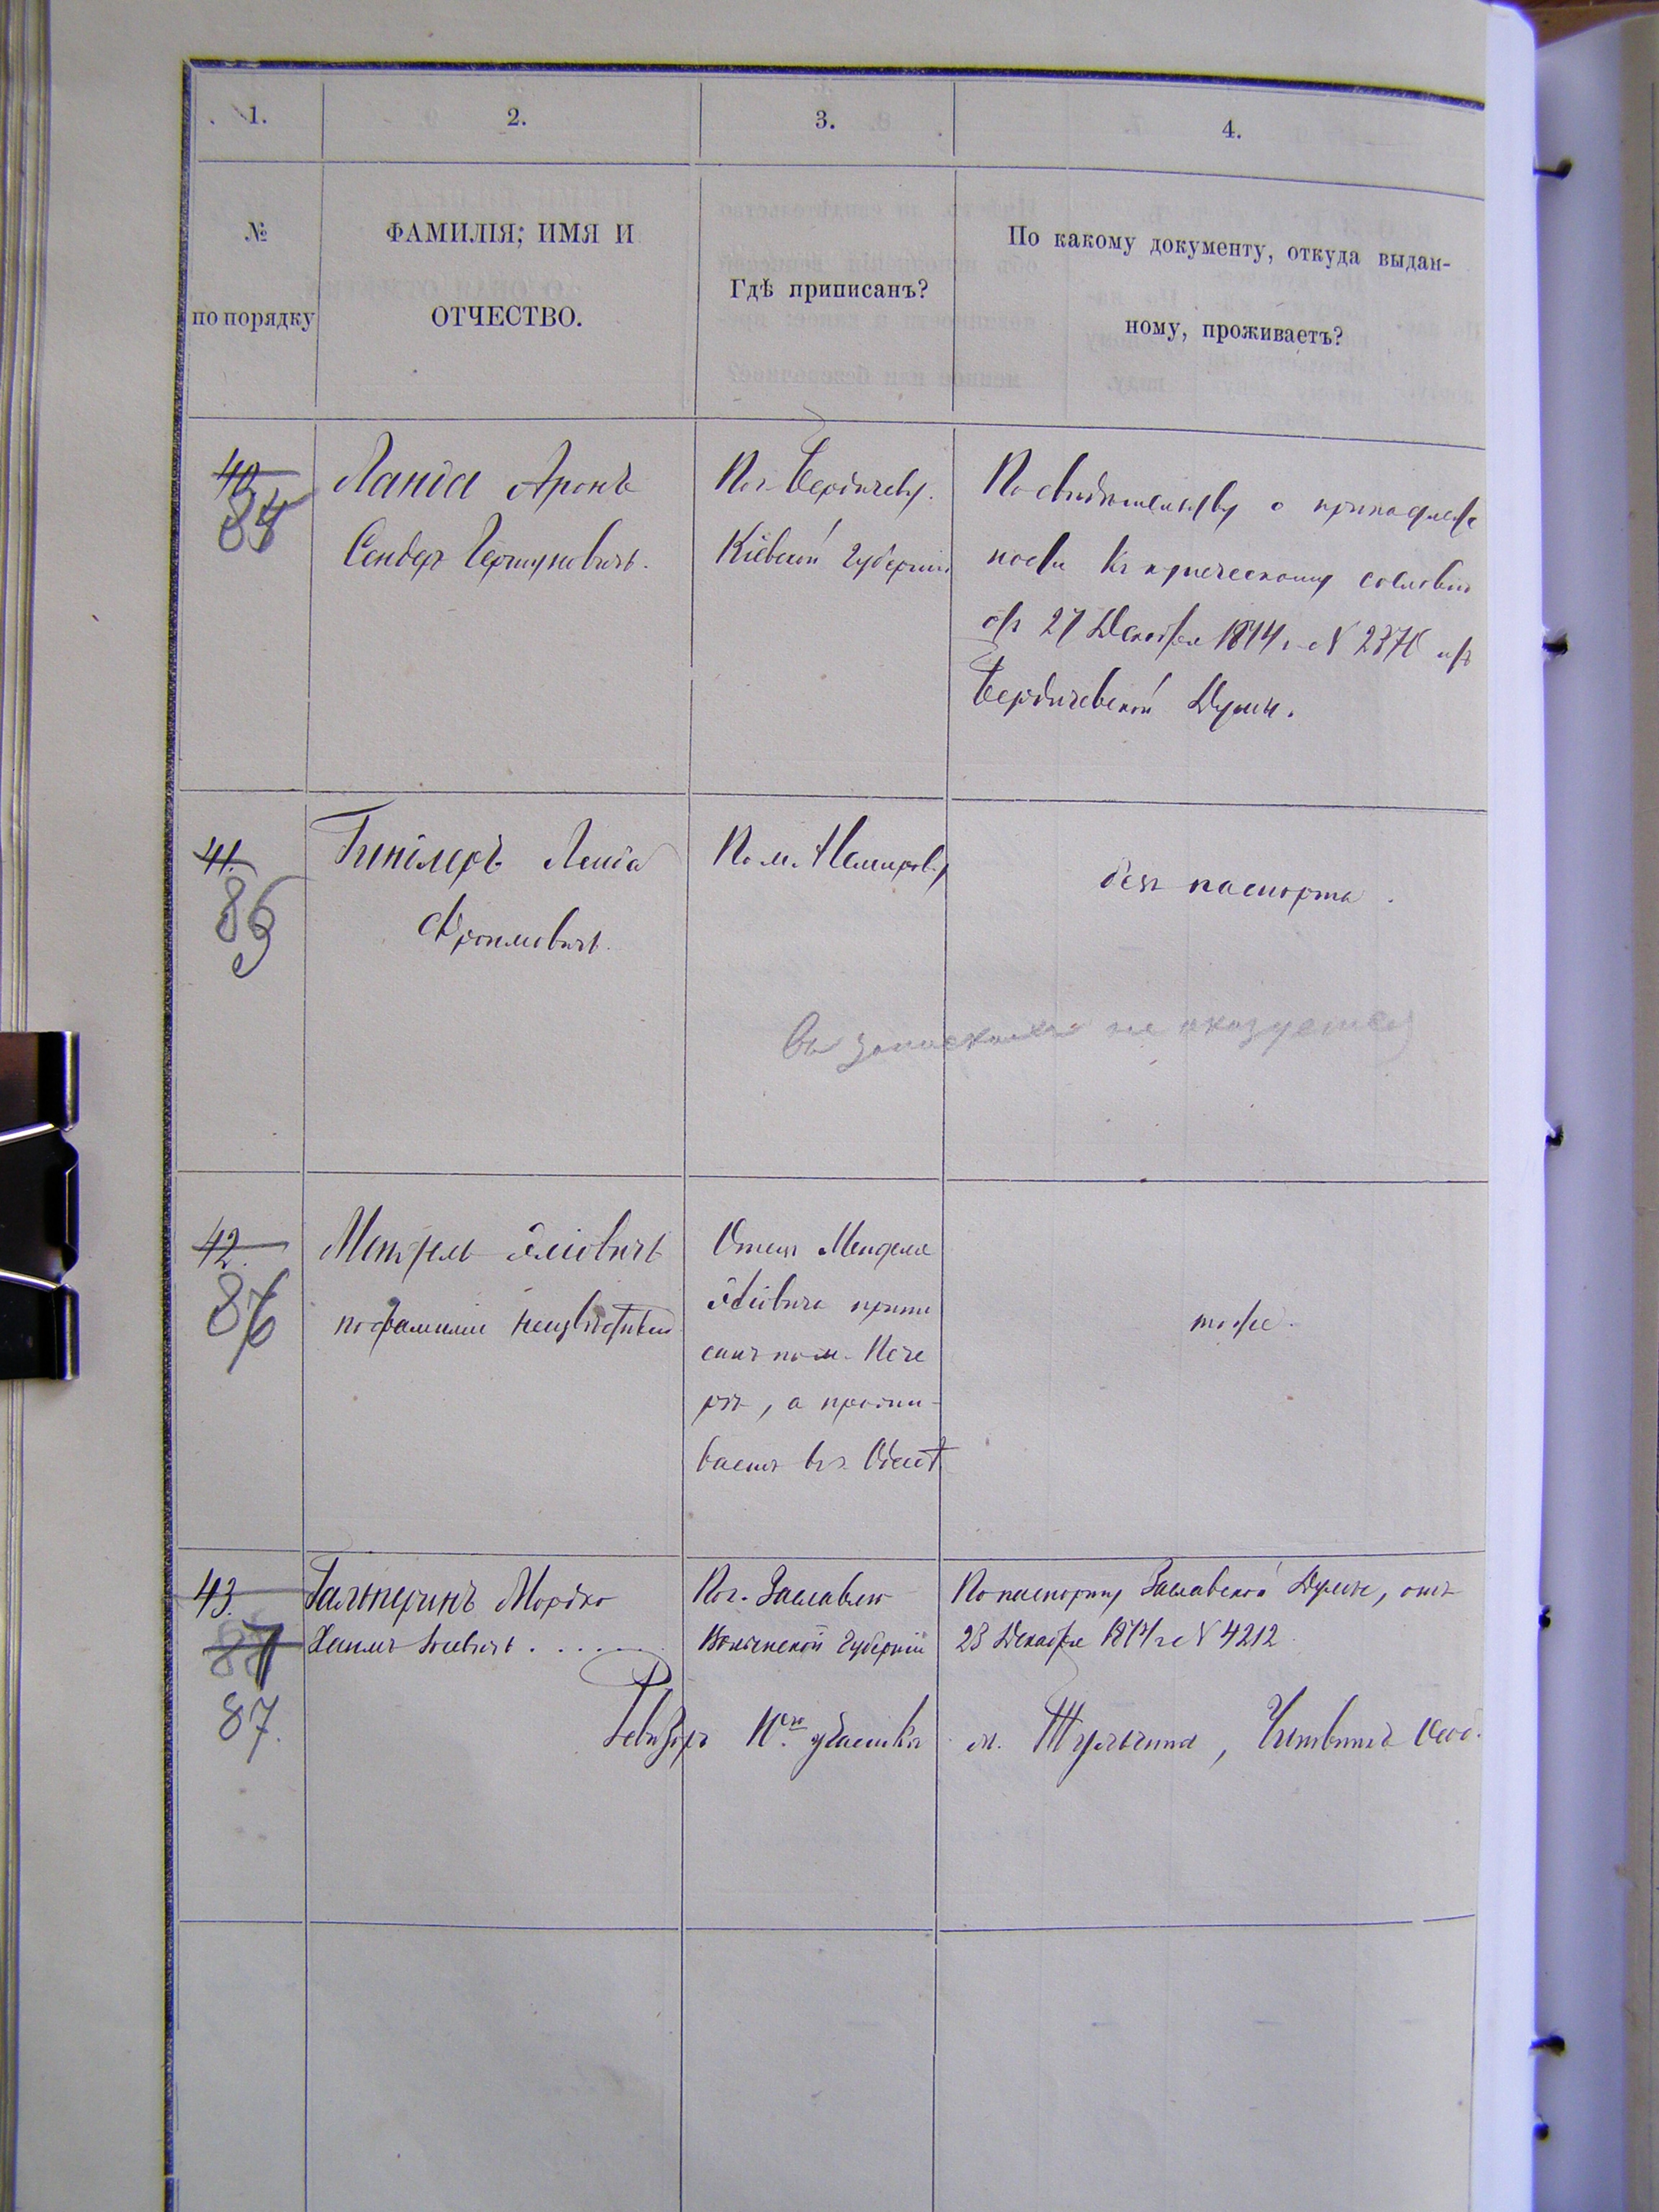 1.
2.
3.
4.
№
по порядку
ФАМИЛІЯ; ИМЯ И
ОТЧЕСТВО.
Гдѣ приписанъ?
По какому документу, откуда выдан-
ному, проживаетъ?
40
84
Ланда Аронъ
Сендеръ Гершуновичъ.
По г. Бердичеву.
Кіевской Губерніи
По свидѣтельству о принадлеж
ности къ купеческому сословію
отъ 27 Декабря 1874 г. №
Бердичевской Думы.
41.
85
Лейба
Фроимовичъ.
По м. Немирову
безъ паспорта.
не оказуется
42.
86
Мендель Эліовичъ
по фамиліи неизвѣстный
Отецъ Менделя
Эліовича припи
санъ по м. Пече
рѣ, а прожи-
ваетъ въ г. Одессѣ
тоже.
43.
87
87.
Гальперинъ Мордко
Хаимъ Іосевичъ.......
По г. Заславлю
Волынской Губерніи
По паспорту Заславской Думы, отъ
23 Декабря 1874 г. № 4212
Ревизоръ участка м. Тульчина,